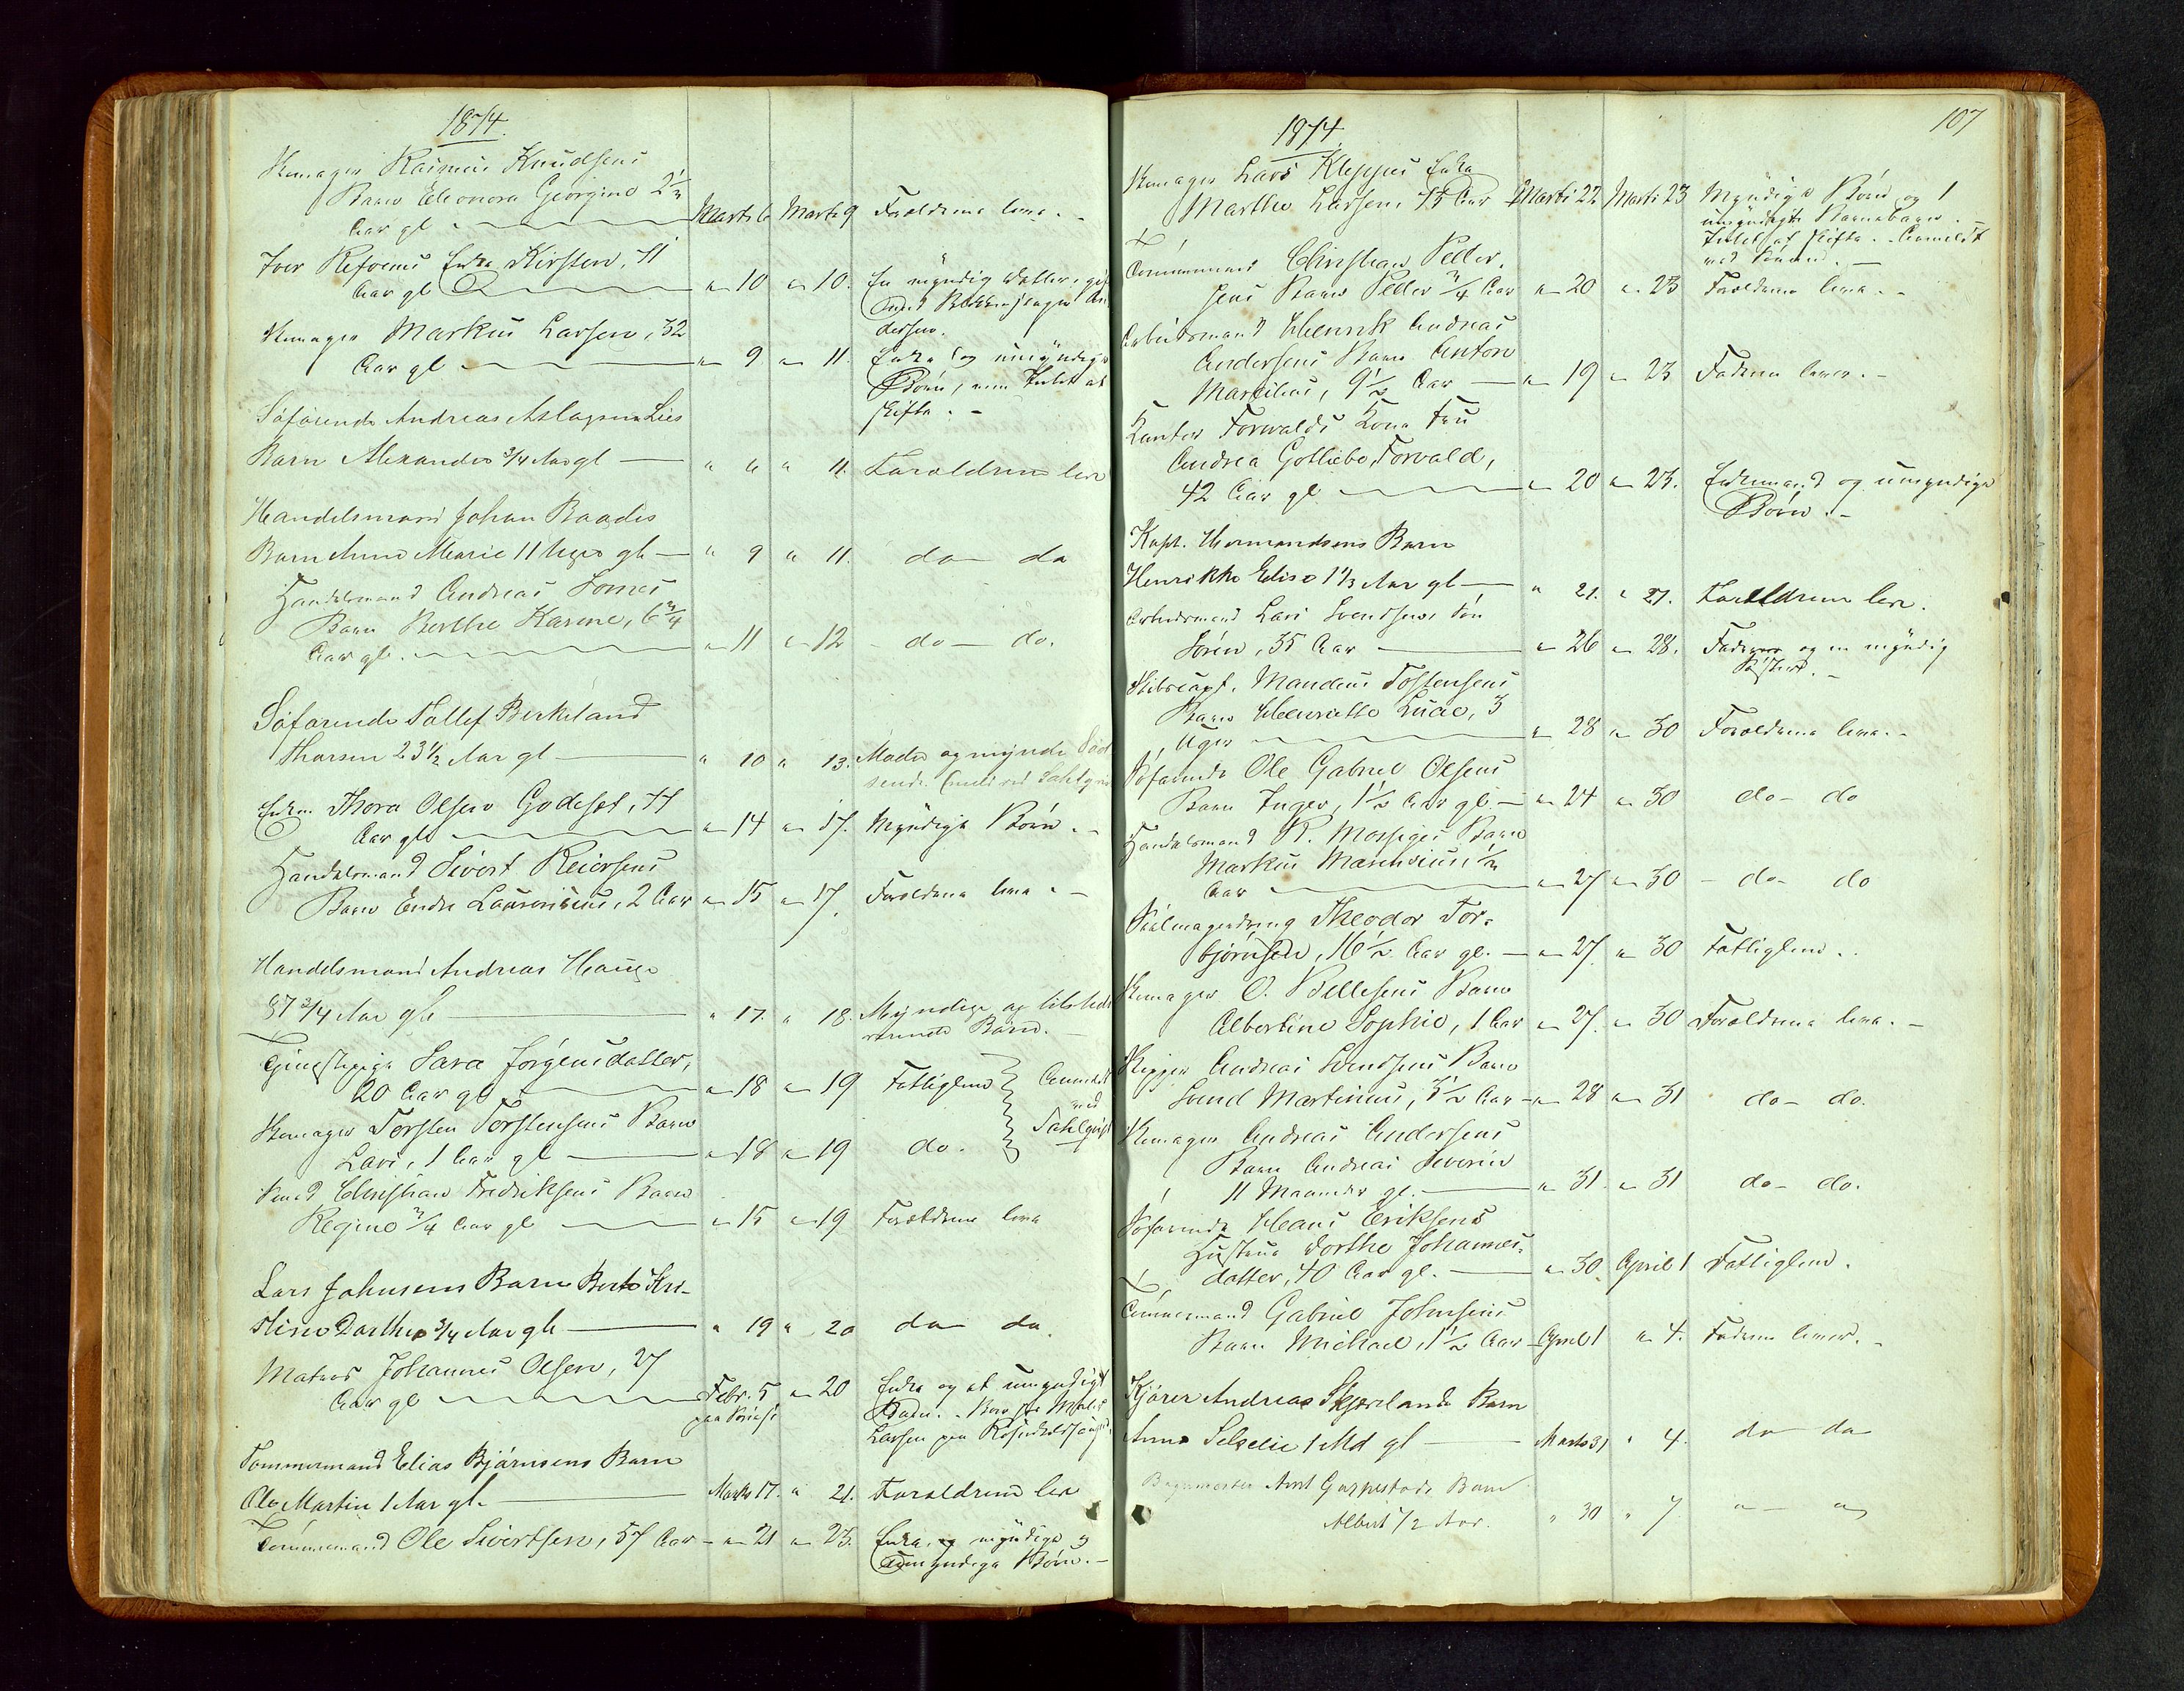 1874.
Skomager Rasmus Knudsens
Barn Eleonora Georgine 2½
Aar gl Marts 6 Marts 9 Forældrene leve. -
Iver Refsens Enke Kirsten, 71
Aar gl " 10 " 10. En myndig Datter, gift
med
dersen.
Skomager Markus Larsen, 32
Aar gl " 9 " 11. Enke og umyndige
Børn,
skifte. -
Søfarende Andreas Aslagsen Lies
Barn Alexander 3/4 Aar gl " 6 " 11. Foraldrene leve
Handelsmand Johan Baades
Barn Anne Marie 11 Uger gl " 9 " 11. do do
Handelsmand Andreas Somes
Barn Berthe Karine, 6 3/4
Aar gl. " 11 " 12 - do - do.
Søfarende Tollef Birkeland
Thorsen 23½ Aar gl " 10 " 13. Moder og mynde Sød
sende
Enken Thora Olsen Godeset, 77
Aar gl " 14 " 17. Myndige Børn. -
Handelsmand Sivert Reiersens
Barn Endre Laurentius, 2 Aar " 15 " 17. Forældrene leve. -
Handelsmand Andreas Hauge
87 3/4 Aar gl " 17. " 18. Myndige og tilstede
værende Børn.
Tjenestepige Sara Jørgensdatter,
20 Aar gl " 18 " 19 Fattiglem Anmeldt
ved
Skomager Torsten Torstensens Barn
Lars, 1 Aar gl " 18 " 19 do.
Smed Christian Fredriksens Barn
Regine 3/4 Aar gl " 15 " 19 Forældrene leve
Lars Johnsens Barn Berte Kri-
stine Dorthea 3/4 Aar gl " 19 " 20 do do.
Matros Johannes Olsen, 27
Aar gl Febr. 5 " 20 Enke og et umyndigt
Barn.
Larsen paa
Tømmermand Elias Bjørnsens Barn
Ole Martin 1 Aar gl. Marts 17. " 21. Foraldrene leve
Tømmermand Ole Sivertsen, 57 Aar - " 21 " 23. Enke, og myndige og
umyndige Børn. -
107
1874.
Skomager Lars Kleppes Enke
Marthe Larsen, 75 Aar Marts 22 Marts 23 Myndige Børn og 1
umyndigt Barnebarn. -
Intet at skifte. - Anmeldt
ved Sønnen. -
Tømmermand Christian Peder-
sens Barn Peder 3/4 Aar " 20 " 23 Forældrene leve. -
Arbeidsmand Henrik Andreas
Andersens Barn Anton
Marselius, 9½ Aar " 19 " 23 Faderen lever. -
Kantor Forwalds Kone Fru
Andrea Gotliebe Forvald,
42 Aar gl " 20 " 23. Enkemand og umyndige
Børn. -
Kapt. Hermandsens Barn
Henrikke Elise 1 1/3 Aar gl " 21. " 27. Forældrene leve.
Arbeidsmand Lars Svendsens Søn
Søren, 35 Aar " 26 " 28. Faderen og en myndig
Søster. -
Skibscapt. Mandius Tostensens
Barn Henriette Lucie, 3
Uger " 28 " 30 Forældrene leve. -
Søfarende Ole Gabriel Olsens
Barn Inger, 1½ Aar gl. " 24 " 30 do - do
Handelsmand R. Mossiges Barn
Markus Mauritius, ½
Aar " 27 " 30 - do - do
Seilmagerdreng Theodor Tor-
bjørnsen, 16½ Aar gl. " 27. " 30 Fattiglem.
Skomager O. Pellesens Barn
Albertine Sophie, 1 Aar " 27. " 30 Forældrene leve. -
Skipper Andreas Svendsens Barn
Svend Martinius, 3½ Aar " 28 " 31 do - do.
Skomager Andreas Andersens
Barn Andreas Severin
11 Maaneder gl. " 31. " 31 do - do.
Søfarende Hans Eriksens
Hustrue Dorthe Johannes-
datter, 40 Aar gl. " 30. April 1 Fattiglem.
Tømmermand Gabriel Johnsens
Barn Michael, 1½ Aar April 1 " 4. Faderen lever. -
Kjører Andreas Skjævelands Barn
Anne Selselie 1 Md gl Marts 31 " 4. do do
Bagermester Arnt Garpestads Barn
Albert 1/2 Aar. " 30 " 7 " "